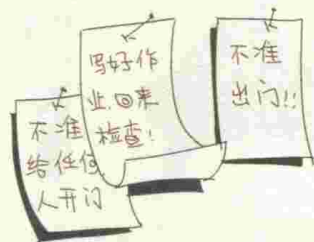 不准
给任何
人开门
写好作
业.回来
检查!
不准
出门!!